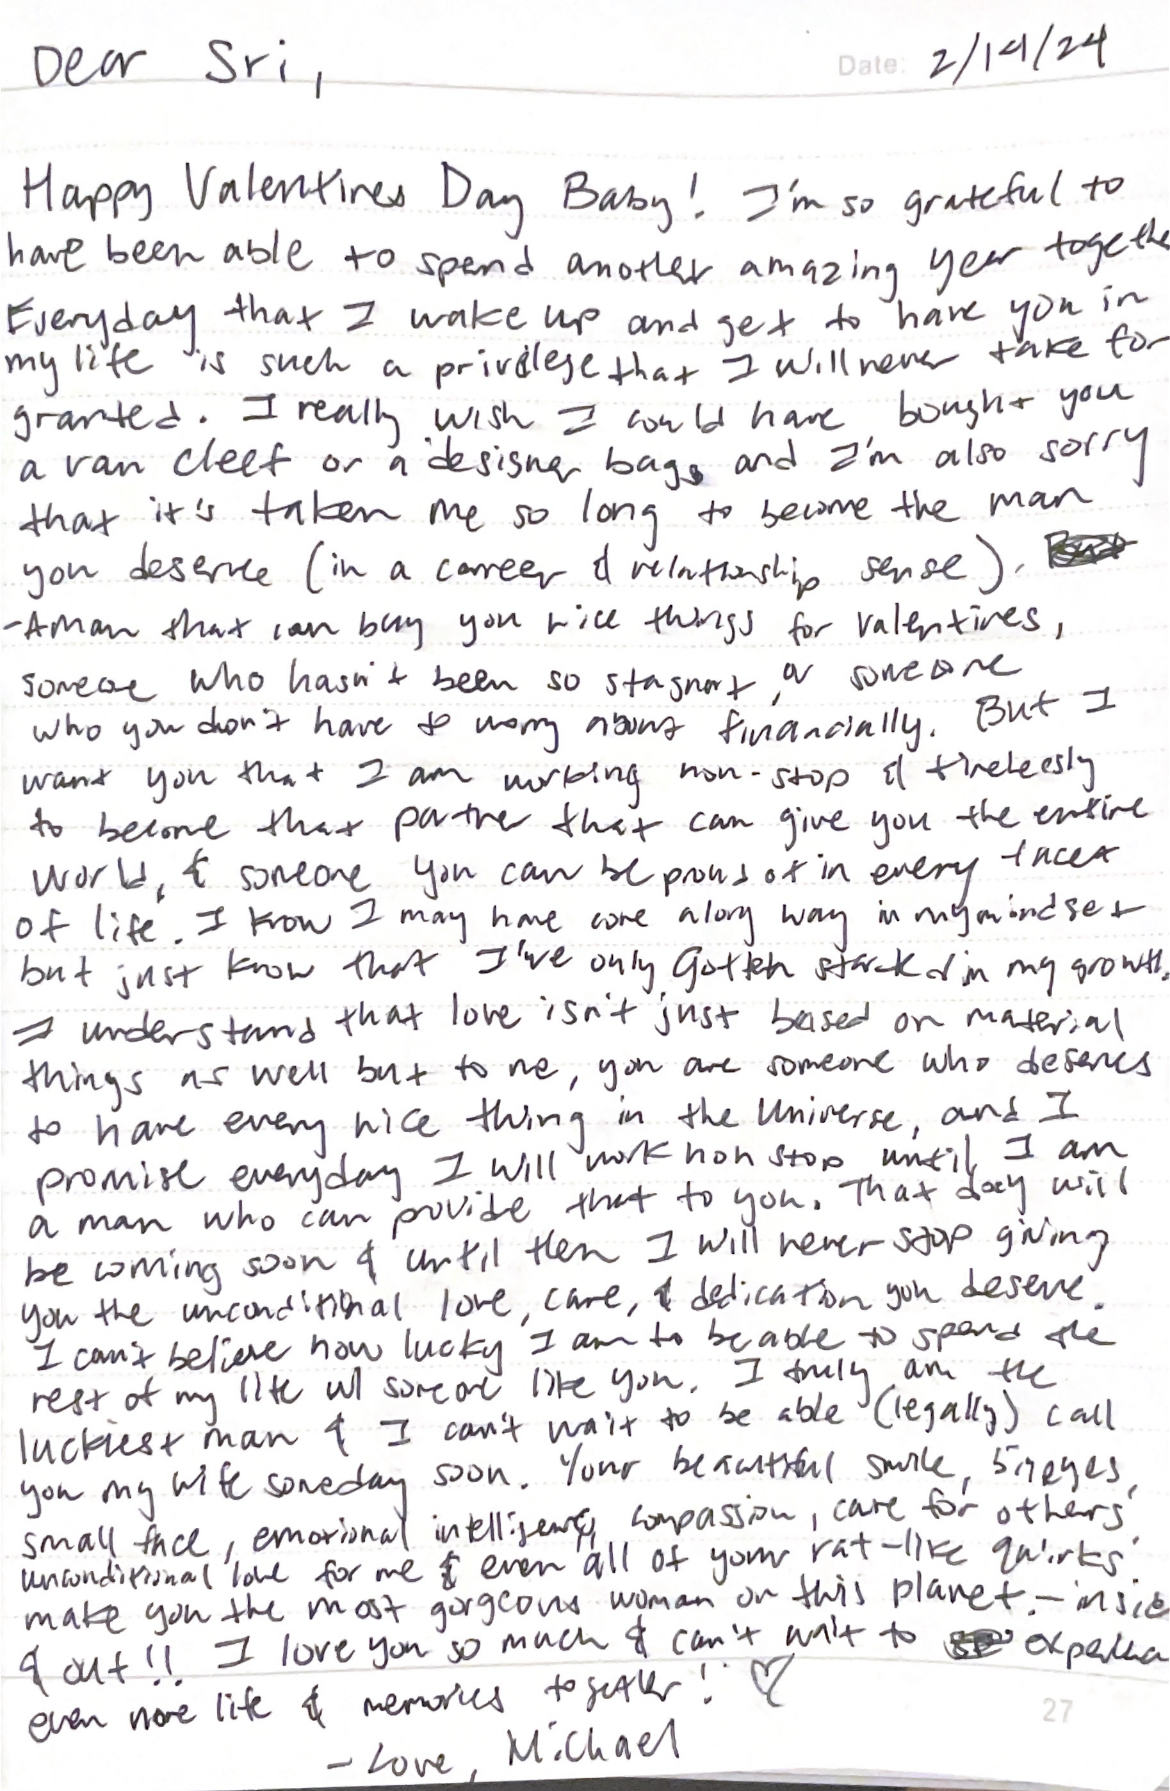 Dear Sri,
Date: 2/14/24
Happy Valentines Day Baby! I'm so grateful to
have been able to spend another amazing year togethe
Everyday that I wake up and get to have you in
my life is such a privilege that I will never take for
granted. I really wish I could have bought you
a van cleef or a designer bags and I'm also sorry
that it's taken me so long to become the man
you deserve (in a career & relationship sense).
- A man that can buy you nice things for valentines,
someone who hasn't been so stagnant, or someone
who you don't have to worry about financially. But I
want you that I am working non-stop & tirelessly
to become that partner that can give you the entire
world, & someone you can be proud of in every facet
of life. I know I may have come along way in my mindset
but just know that I've only Gotten started in my growth.
I understand that love isn't just based on material
things as well but to me, you are someone who deserves
to have every nice thing in the Universe, and I
promise everyday I will work non stop until I am
a man who can provide that to you. That day will
be coming soon & until then I will never stop giving
you the unconditional love, care, & dedication you deserve.
I can't believe how lucky I am to be able to spend the
rest of my life w/ someone like you. I truly am the
luckiest man & I can't wait to be able (legally) call
you my wife someday soon. Your beautiful smile, eyes,
small face, emotional intelligence, compassion, care for others,
unconditional love for me & even all of your rat-like quirks
make you the most gorgeous woman on this planet. - insie
& out!! I love you so much & can't wait to
even more life & memories together! ♡
- Love, Michael
27